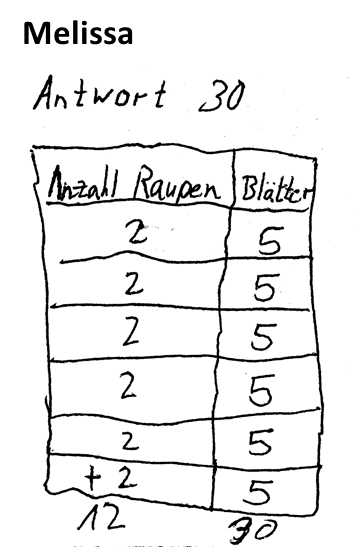 Melissa
Antwort 30
Anzahl Raupen Blätter
2 5
2 5
2 5
2 5
2 5
+ 2 5
12 30